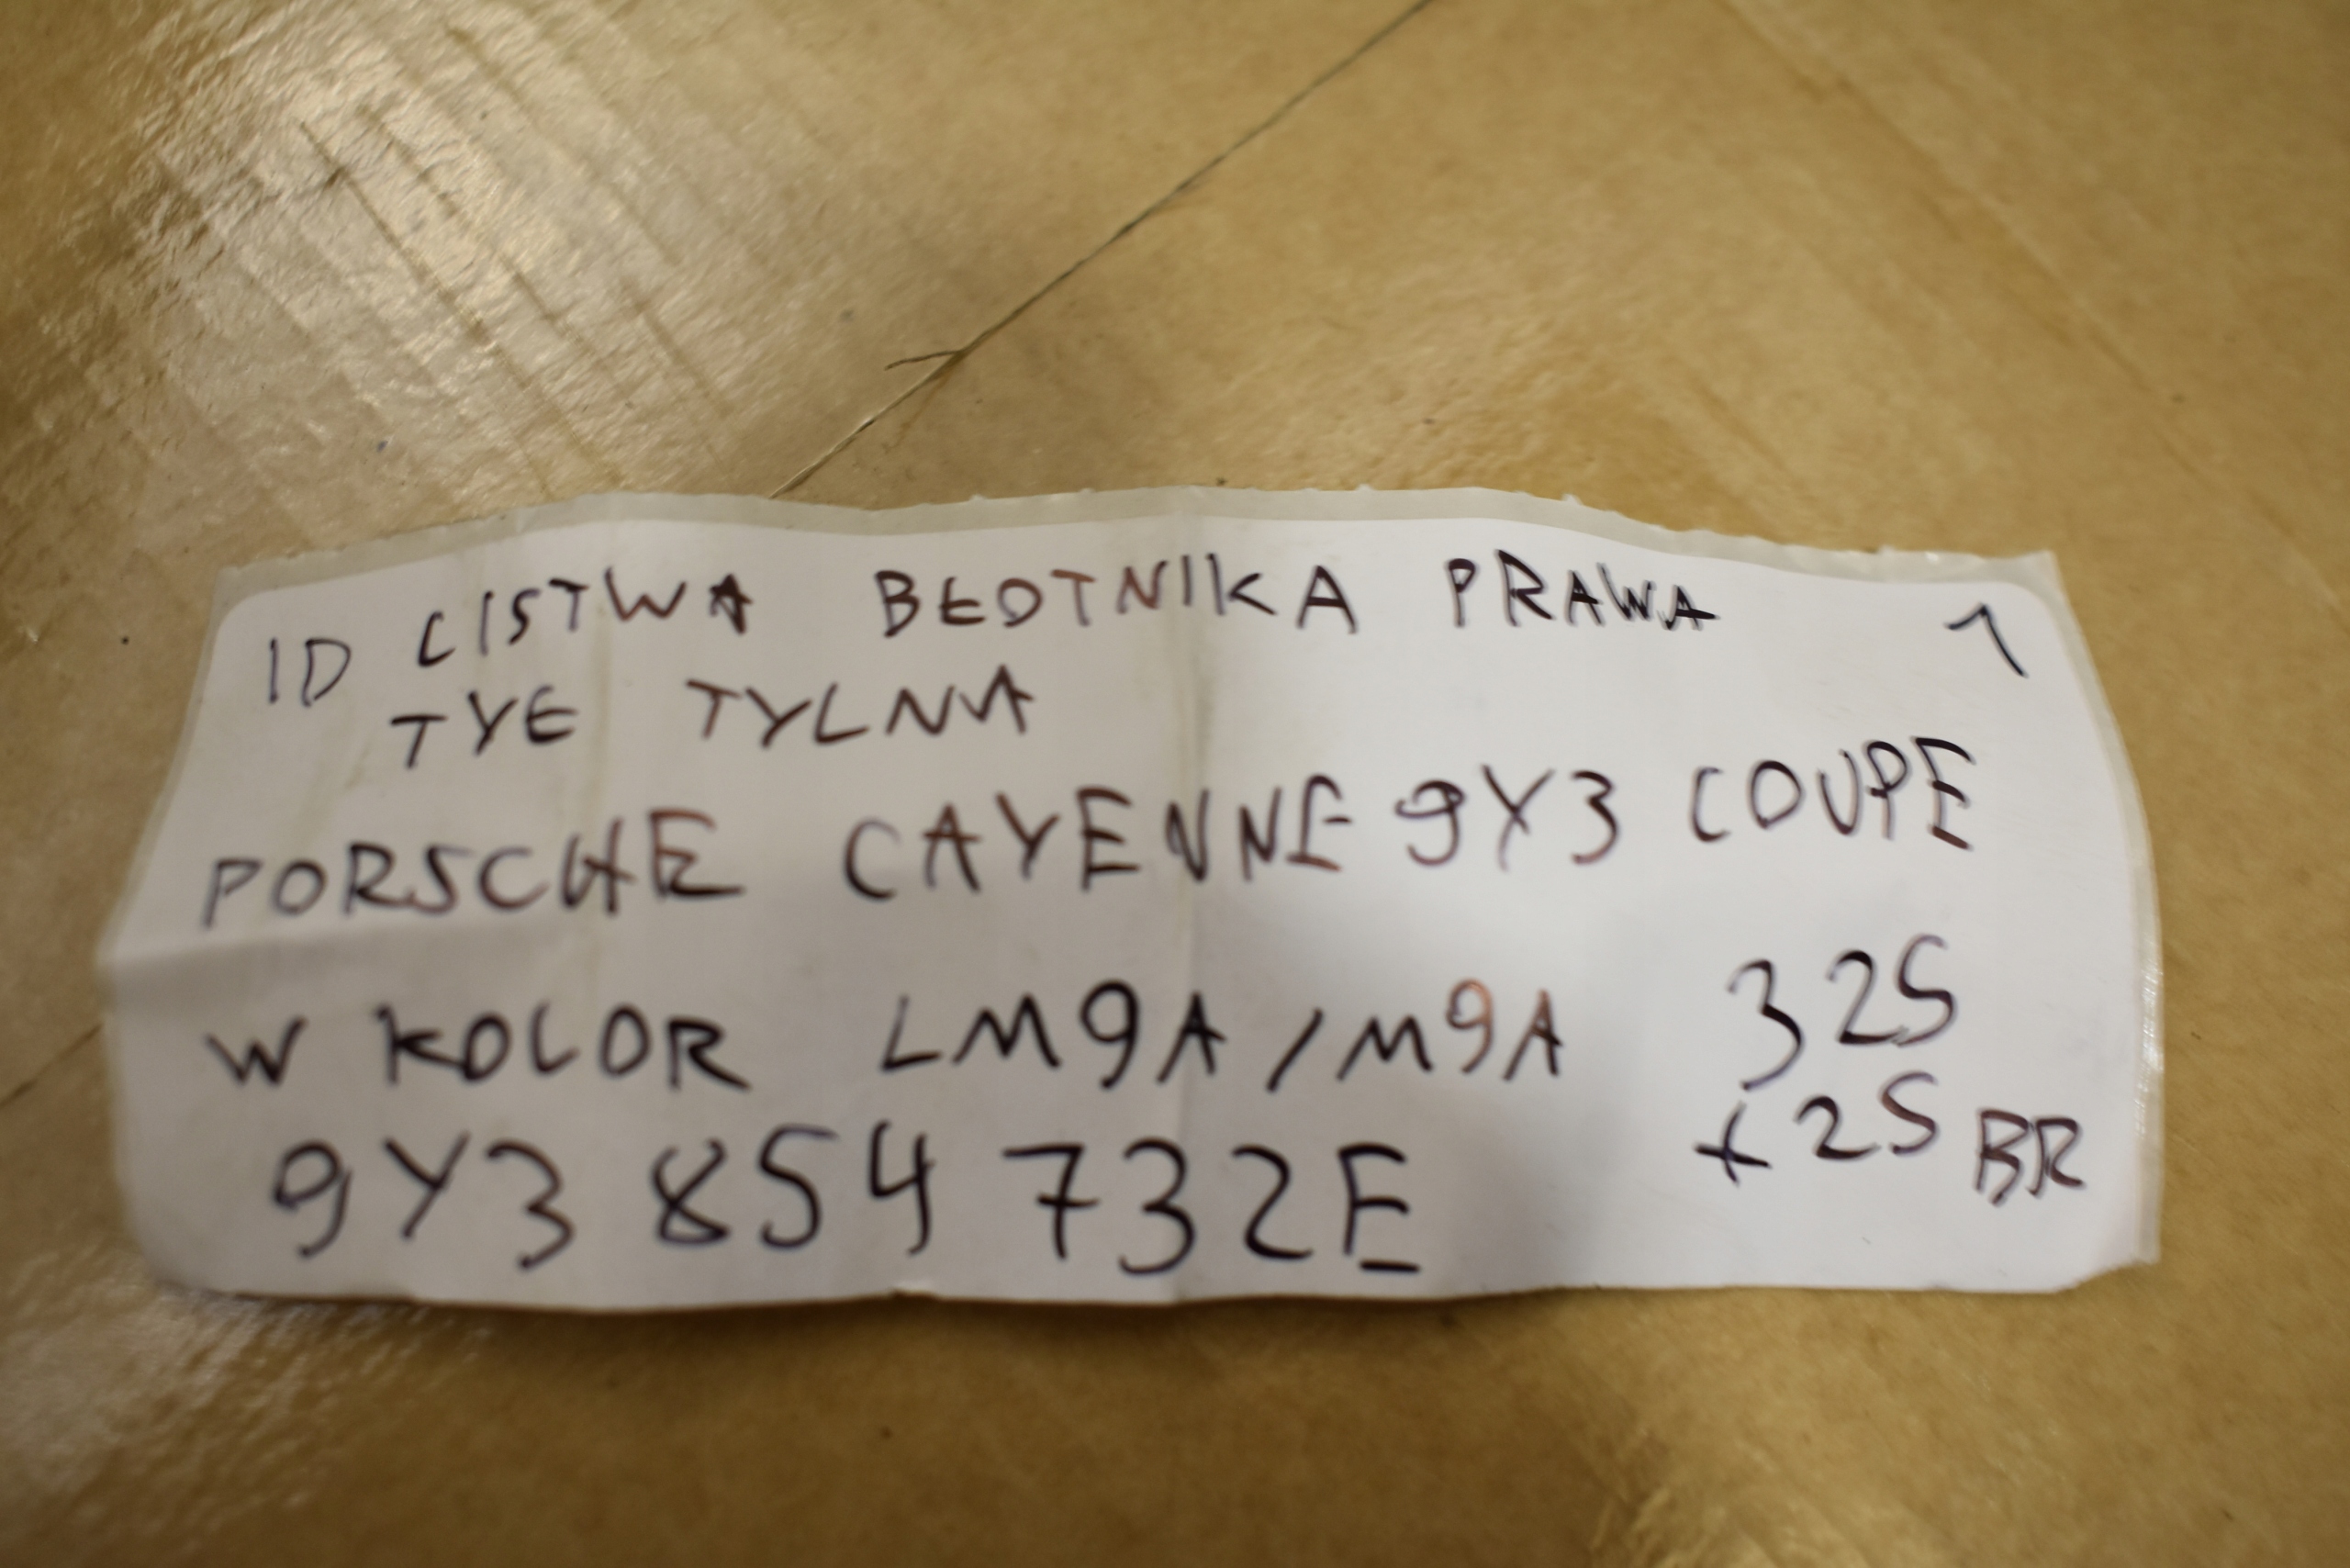 ID LISTWA BŁOTNIKA PRAWA 1
TYŁ TYLNA
PORSCHE CAYENNE 9Y3 COUPE
W KOLOR LM9A / M9A 325
+25 BR
9Y3 854 732E